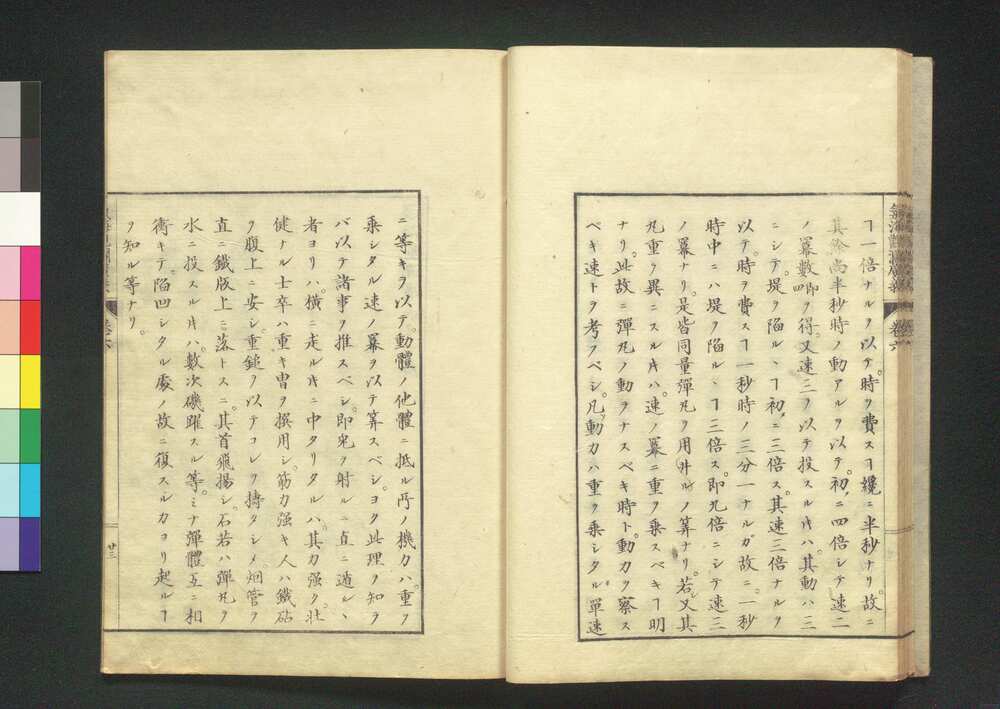 ヿ一倍ナルヲ以テ時ヲ費スヿ纔ニ半秒ナリ。故ニ
其餘尚半秒時ノ動アルヲ以テ、初ニ四倍シテ速二
ノ冪數ヲ得。又速三ヲ以テ投スル𪜈ハ其動ハ三
ニシテ堤ヲ陷ル、ヿ初ニ三倍ス。其速三倍ナルヲ
以テ時ヲ費スヿ一秒時ノ三分一ナルガ故ニ一秒
時中ニハ堤ヲ陷ル、ヿ三倍ス。即九倍ニシテ速三
ノ冪ナリ。是皆同量彈丸ヲ用井ルノ算ナリ。若シ又其
丸重ヲ異ニスル𪜈ハ、速ノ冪ニ重ヲ乗スベキヿ明
ナリ。此故ニ彈丸ノ動ヲナスベキ時ト動力ヲ察ス
ベキ速トヲ考フベシ。凡動力ハ重ヲ乗シタル單速
ニ等キヲ以テ、動體ノ他體ニ抵ル所ノ機力ハ重ヲ
乗シタル速ノ冪ヲ以テ算スベシ。ヨク此理ヲ知ラ
バ以テ諸事ヲ推スベシ。即兎ヲ射ルニ直ニ遁レ、
者ヨリハ横ニ走ル𪜈ニ中タリタルハ其力强ク、壯
健ナル士卒ハ重キ冑ヲ撰用シ、筋力强キ人ハ鐵砧
ヲ腹上ニ安シ、重鎚ヲ以テコレヲ擣タシメ、烟管ヲ
直ニ鐵版上ニ落トスニ其首飛揚シ、石若ハ彈丸ヲ
水ニ投スル𪜈ハ數次磯躍スル等、ミナ彈體互ニ相
衝キテ陷凹シタル處ノ故ニ復スル力ヨリ起ルヿ
ヲ知ル等ナリ。
卷六
廿三